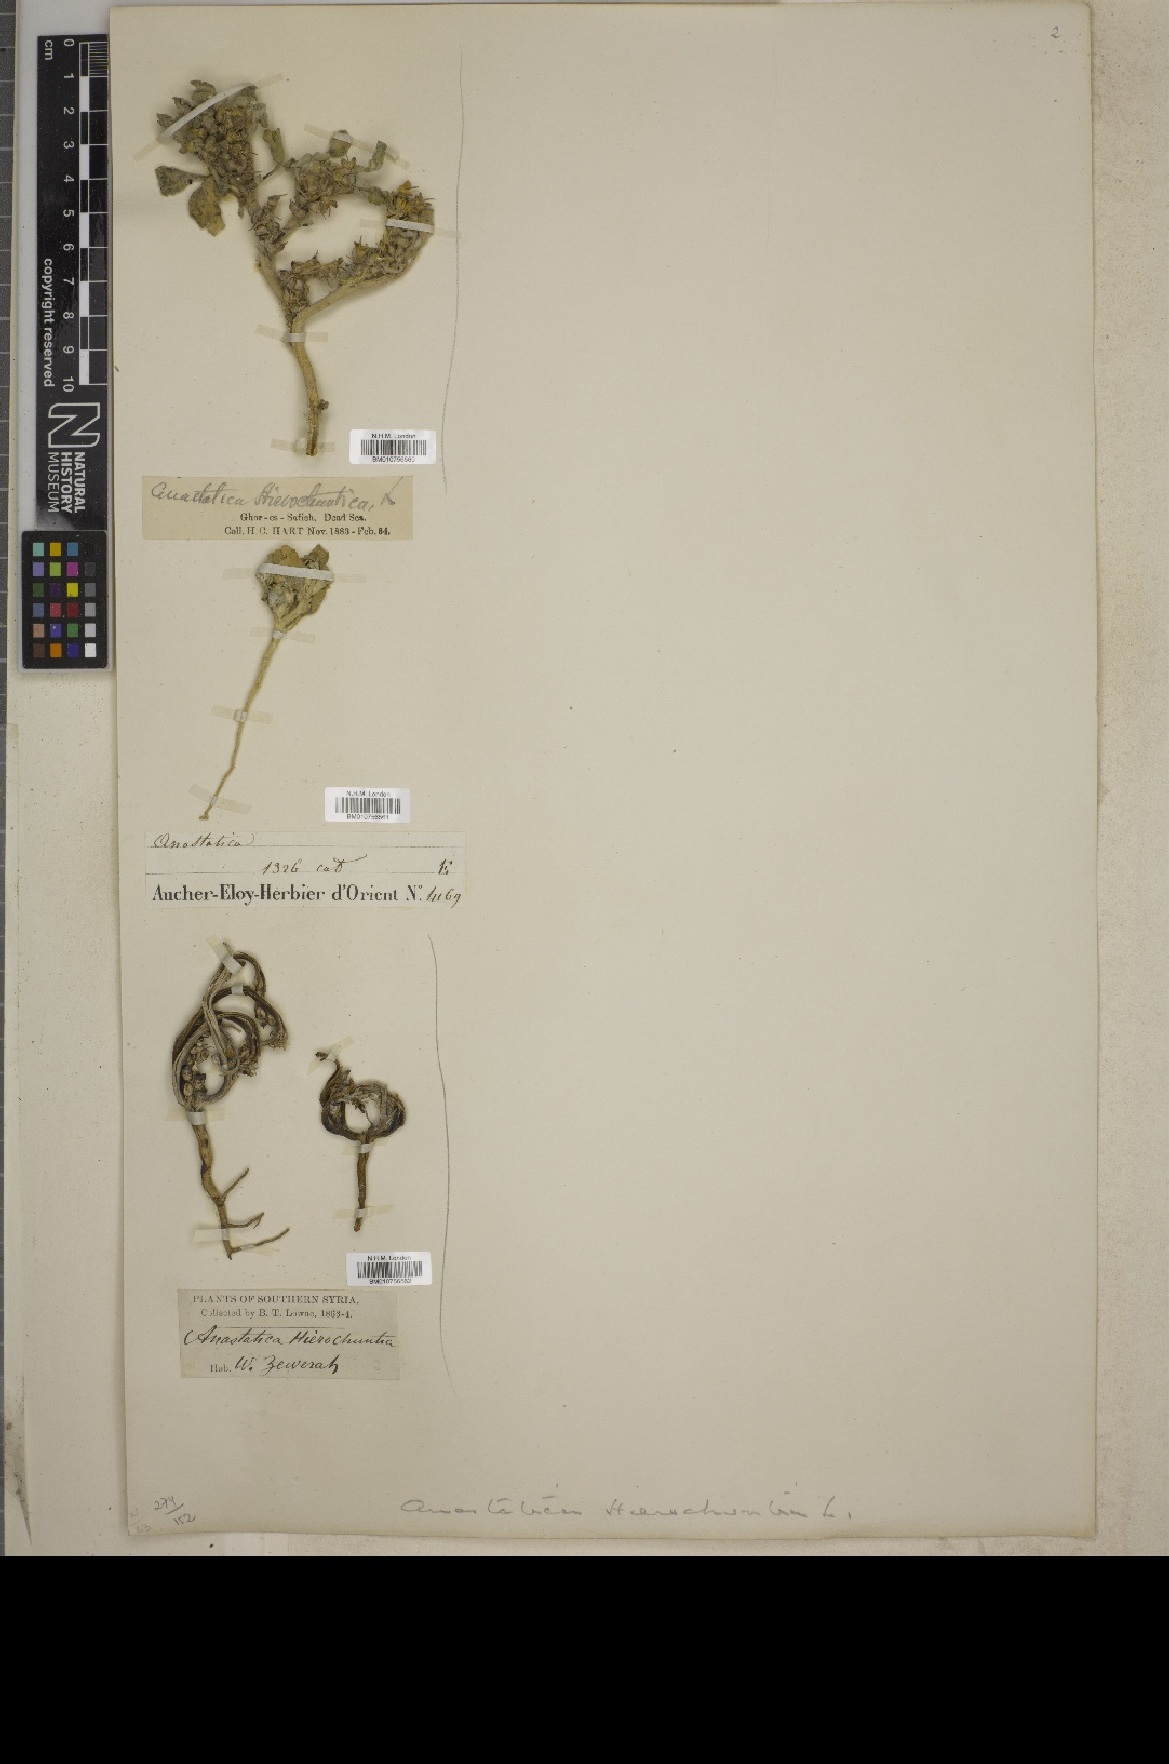 2
cm
0
1
2
3
4
5
6
7
8
9
10
copyright reserved
NATURAL
HISTORY
MUSEUM
N.H.M. London
Anastatica Hierochuntica, L
Ghor-es-Safieh. Dead Sea.
Coll. H C. HART Nov. 1883 - Feb. 84.
N.H.M. London
Anastatica
1326 cat
Aucher-Eloy-Herbier d'Orient N°. 4169
N.H.M. London
PLANTS OF SOUTHERN SYRIA,
Collected by B. T. Lowne, 1863-4.
Anastatica Hierochuntica
Hab. W. Zewerah
274/152
Anastatica Hierochuntica L.